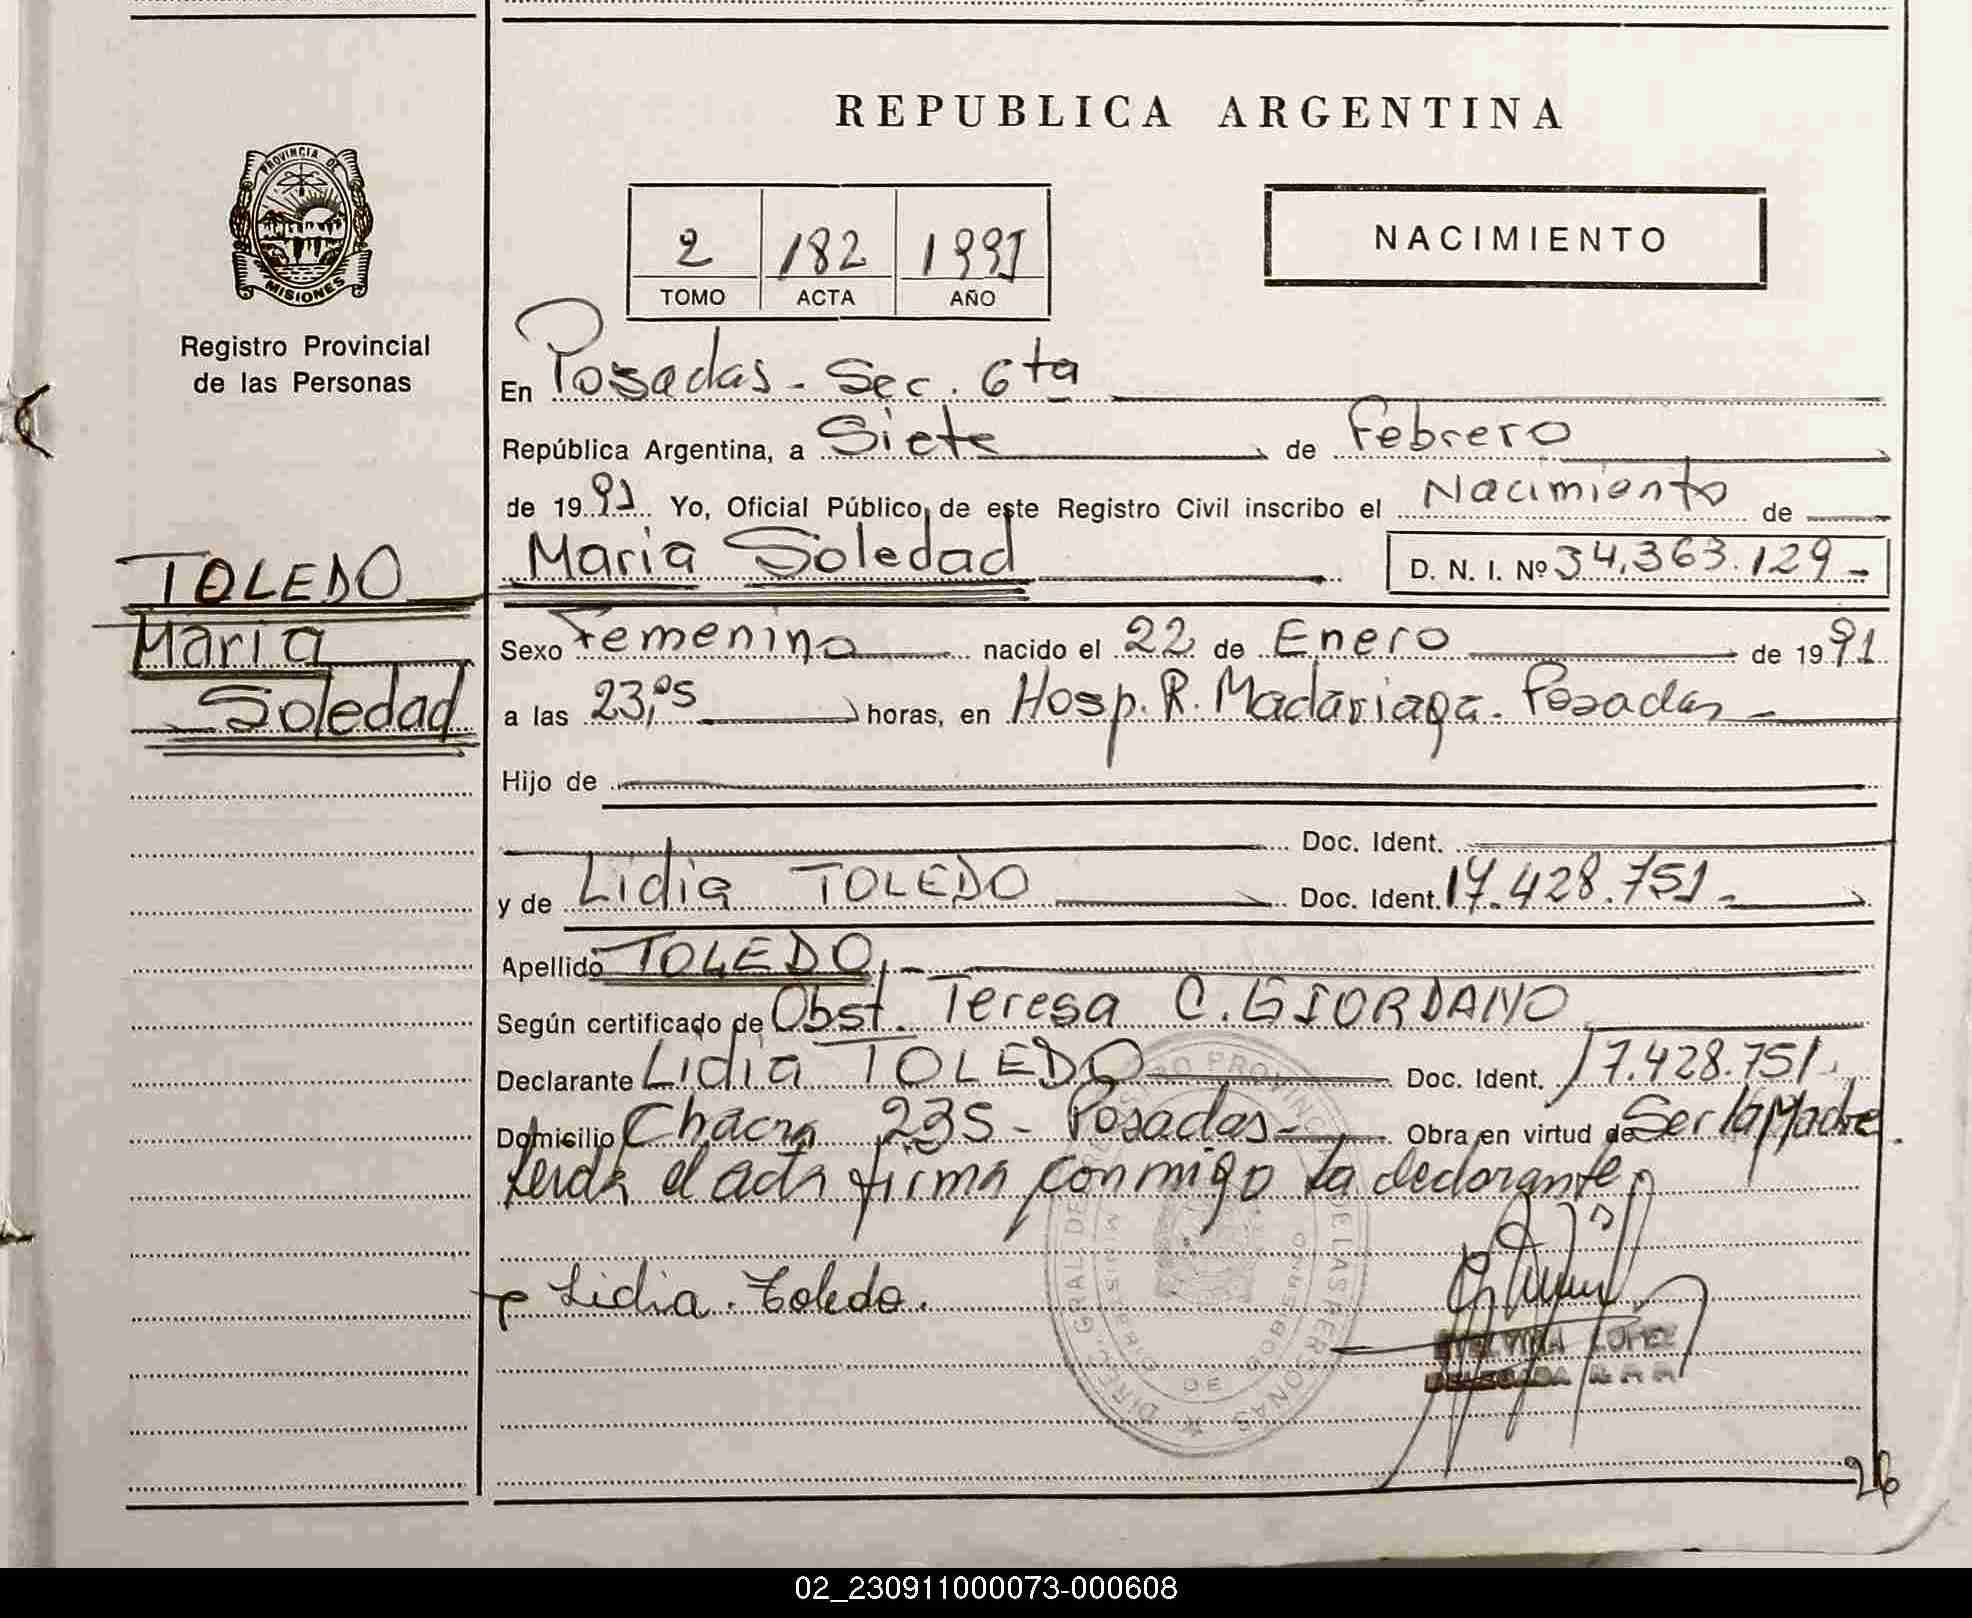 REPUBLICA ARGENTINA
PROVINCIA DE
MISIONES
Registro Provincial
de las Personas
2 182 1991
TOMO ACTA AÑO
NACIMIENTO
En Posadas - Sec. 6ta
República Argentina, a Siete de Febrero
de 1991 Yo, Oficial Público de este Registro Civil inscribo el Nacimiento de
Maria Soledad D. N. I. Nº 34.363.129-
TOLEDO
Maria
Soledad
Sexo Femenino nacido el 22 de Enero de 1991
a las 23,05 horas, en Hosp. R. Madariaga. Posadas -
Hijo de
Doc. Ident.
y de Lidia TOLEDO Doc. Ident. 17.428.751-
Apellido TOLEDO.-
Según certificado de Obst. Teresa C. GIORDANO
Declarante Lidia TOLEDO Doc. Ident. 17.428.751.
Domicilio Chacra 235 - Posadas - Obra en virtud de Ser la Madre.
Leida el acta firma conmigo la declarante
Lidia. Toledo.
LOPEZ
DELEGADA
DIREC. GRAL DEL REGISTRO PROVINCIAL DE LAS PERSONAS
MINISTERIO DE GOBIERNO
26
02_230911000073-000608